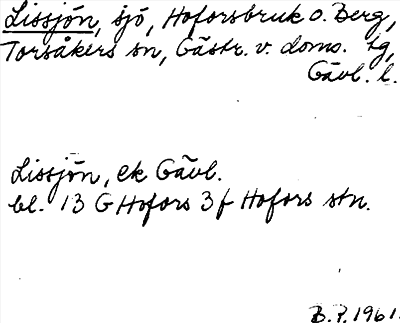 Lissjön, sjö, Hoforsbruk o. Berg,
Torsåkers sn, Gästr. v. doms. tg,
Gävl. l.
Lissjön, ek Gävl.
bl. 13 G Hofors 3 f Hofors stn.
B.P. 1961.